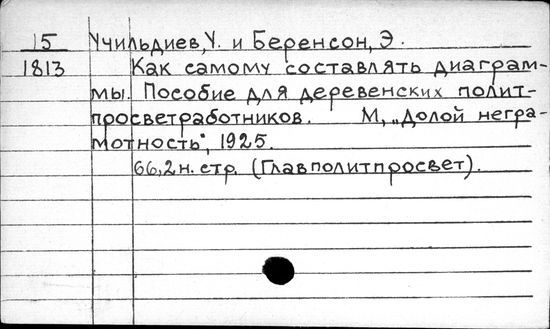 15 Учильдиев, У. и Беренсон, Э.
1813 Как самому составлять диаграм-
мы. Пособие для деревенских полит-
просветработников. М, „Долой негра-
мотность", 1925.
66,2н. стр. (Главполитпросвет).